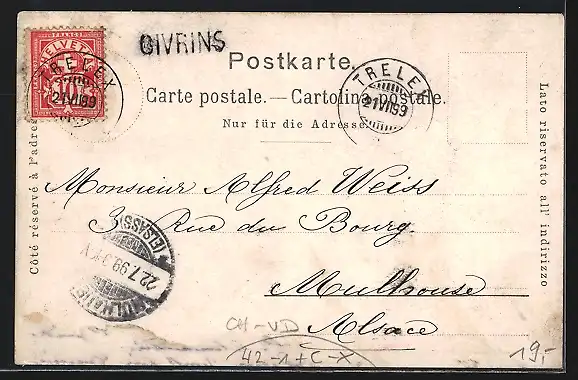 GIVRINS
HELVETIA
FRANCO
10
TRELEX
21 VII 99
Postkarte.
TRELEX
21 VII 99
Carte postale. — Cartolina postale.
Nur für die Adresse.
Côté réservé à l'adres
Lato riservato all' indirizzo
Monsieur Alfred Weiss
3, Rue du Bourg.
(ELSASS)
22.7.99.
Mulhouse
Alsace
CH-VD
42-1+C-X
19,-